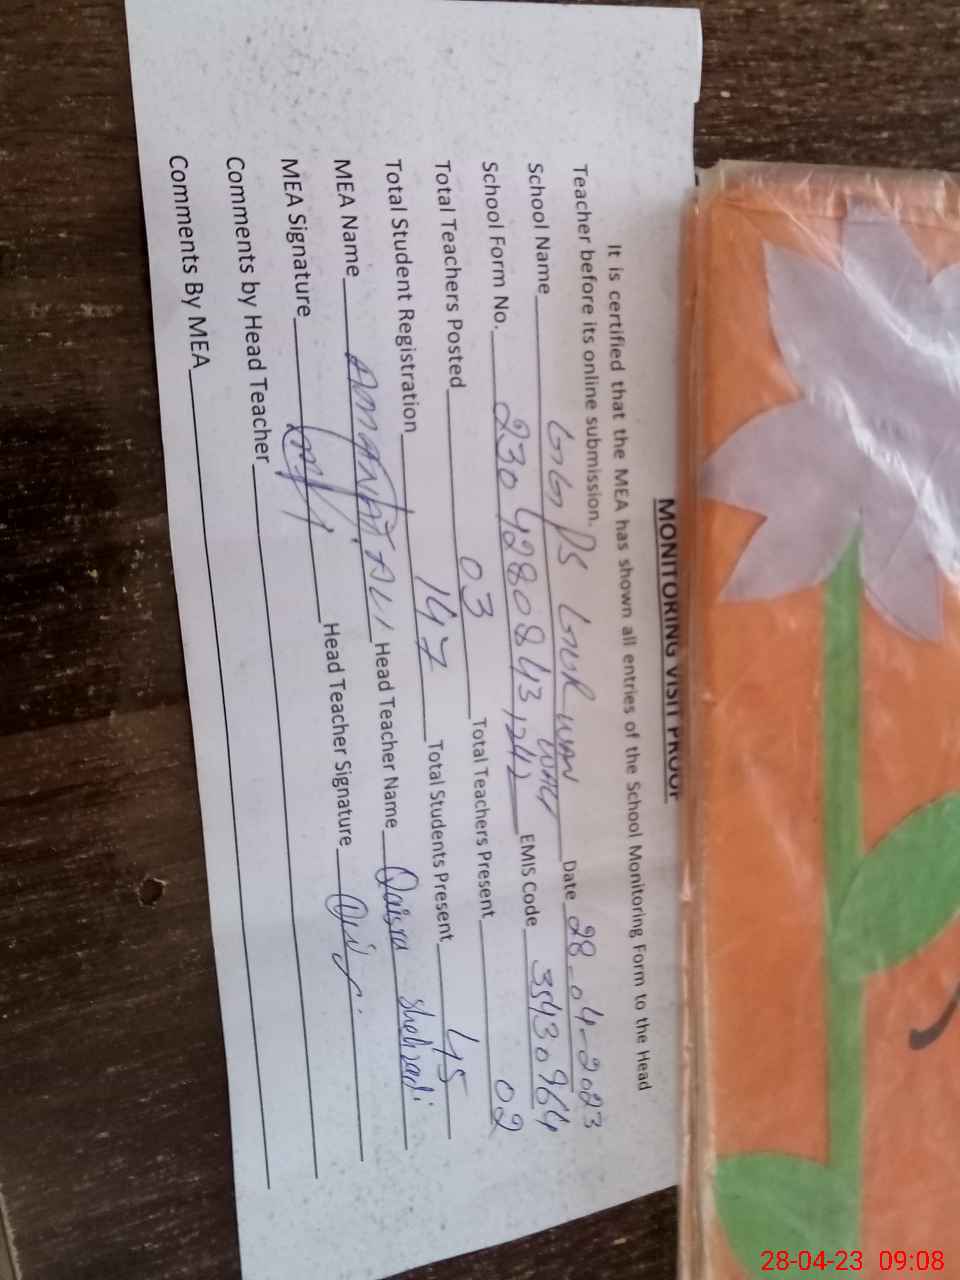 MONITORING VISIT PROOF
It is certified that the MEA has shown all entries of the School Monitoring Form to the Head
Teacher before its online submission.
School Name GGPS Date 28-04-2023
School Form No. EMIS Code 35430964
Total Teachers Posted 03 Total Teachers Present 02
Total Student Registration 147 Total Students Present 45
MEA Name AMANAT ALI Head Teacher Name Qaisra Shehzadi
MEA Signature Head Teacher Signature
Comments by Head Teacher
Comments By MEA
28-04-23 09:08